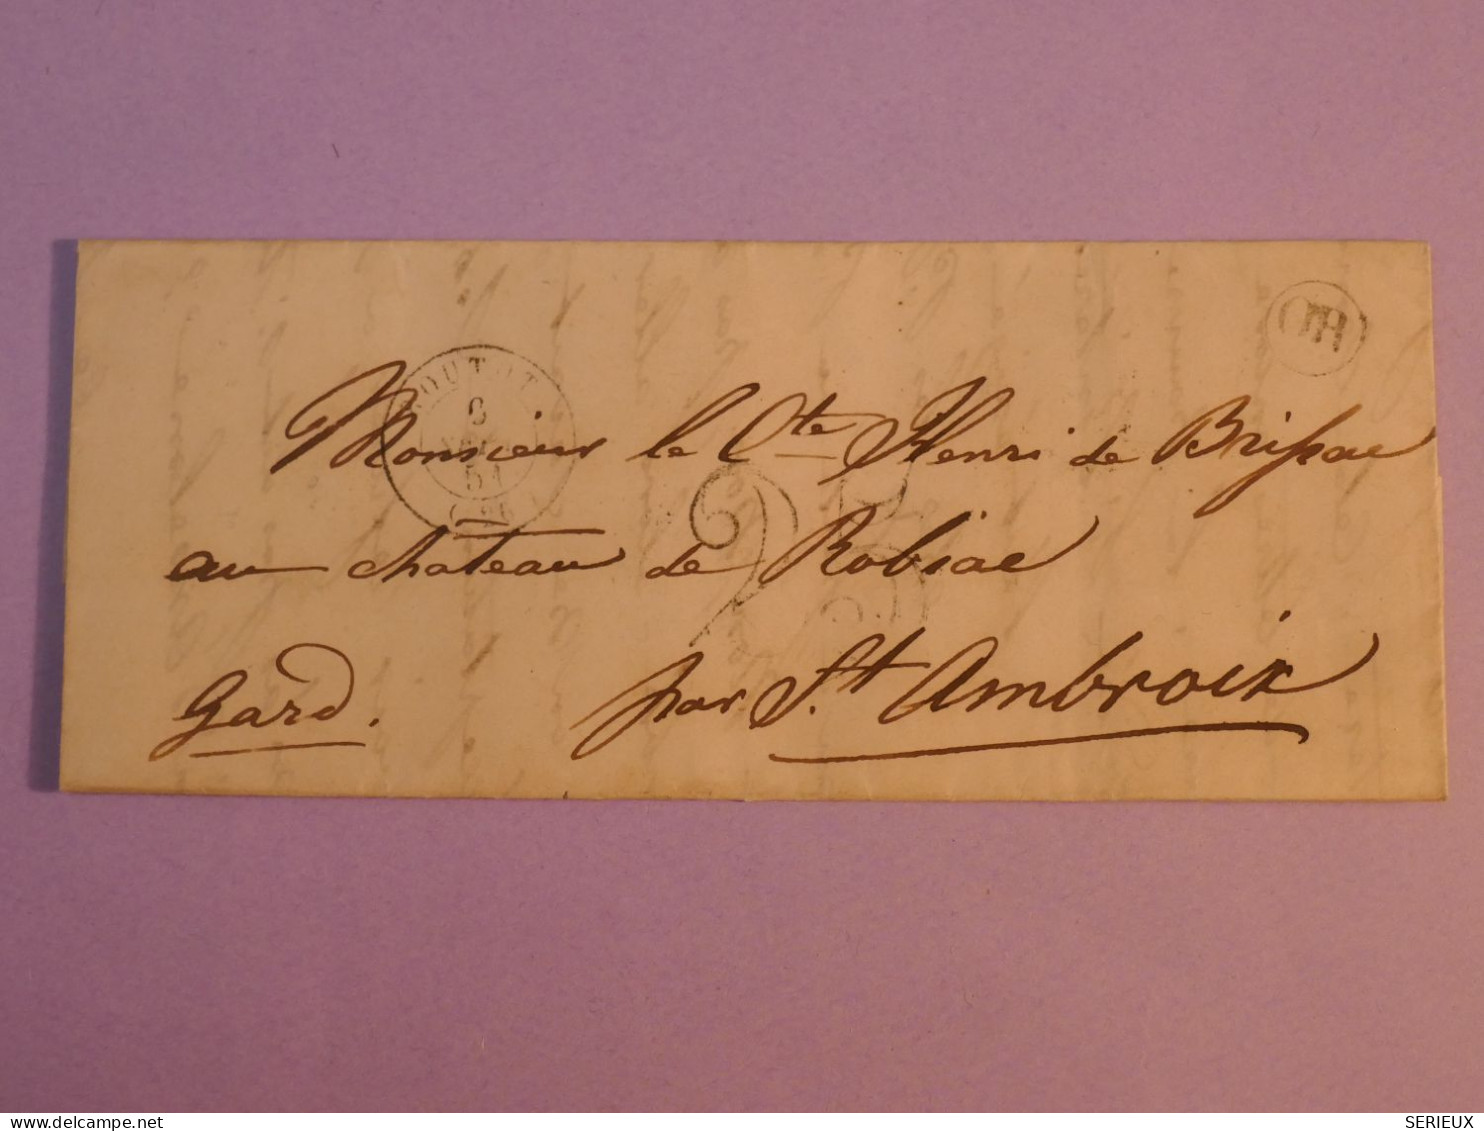 OR
ROUTOT
6
51
(26)
Monsieur le Cte Henri de Brissac
25
au chateau de Robiac
Gard. par St. Ambroix
delcampe.net
SERIEUX